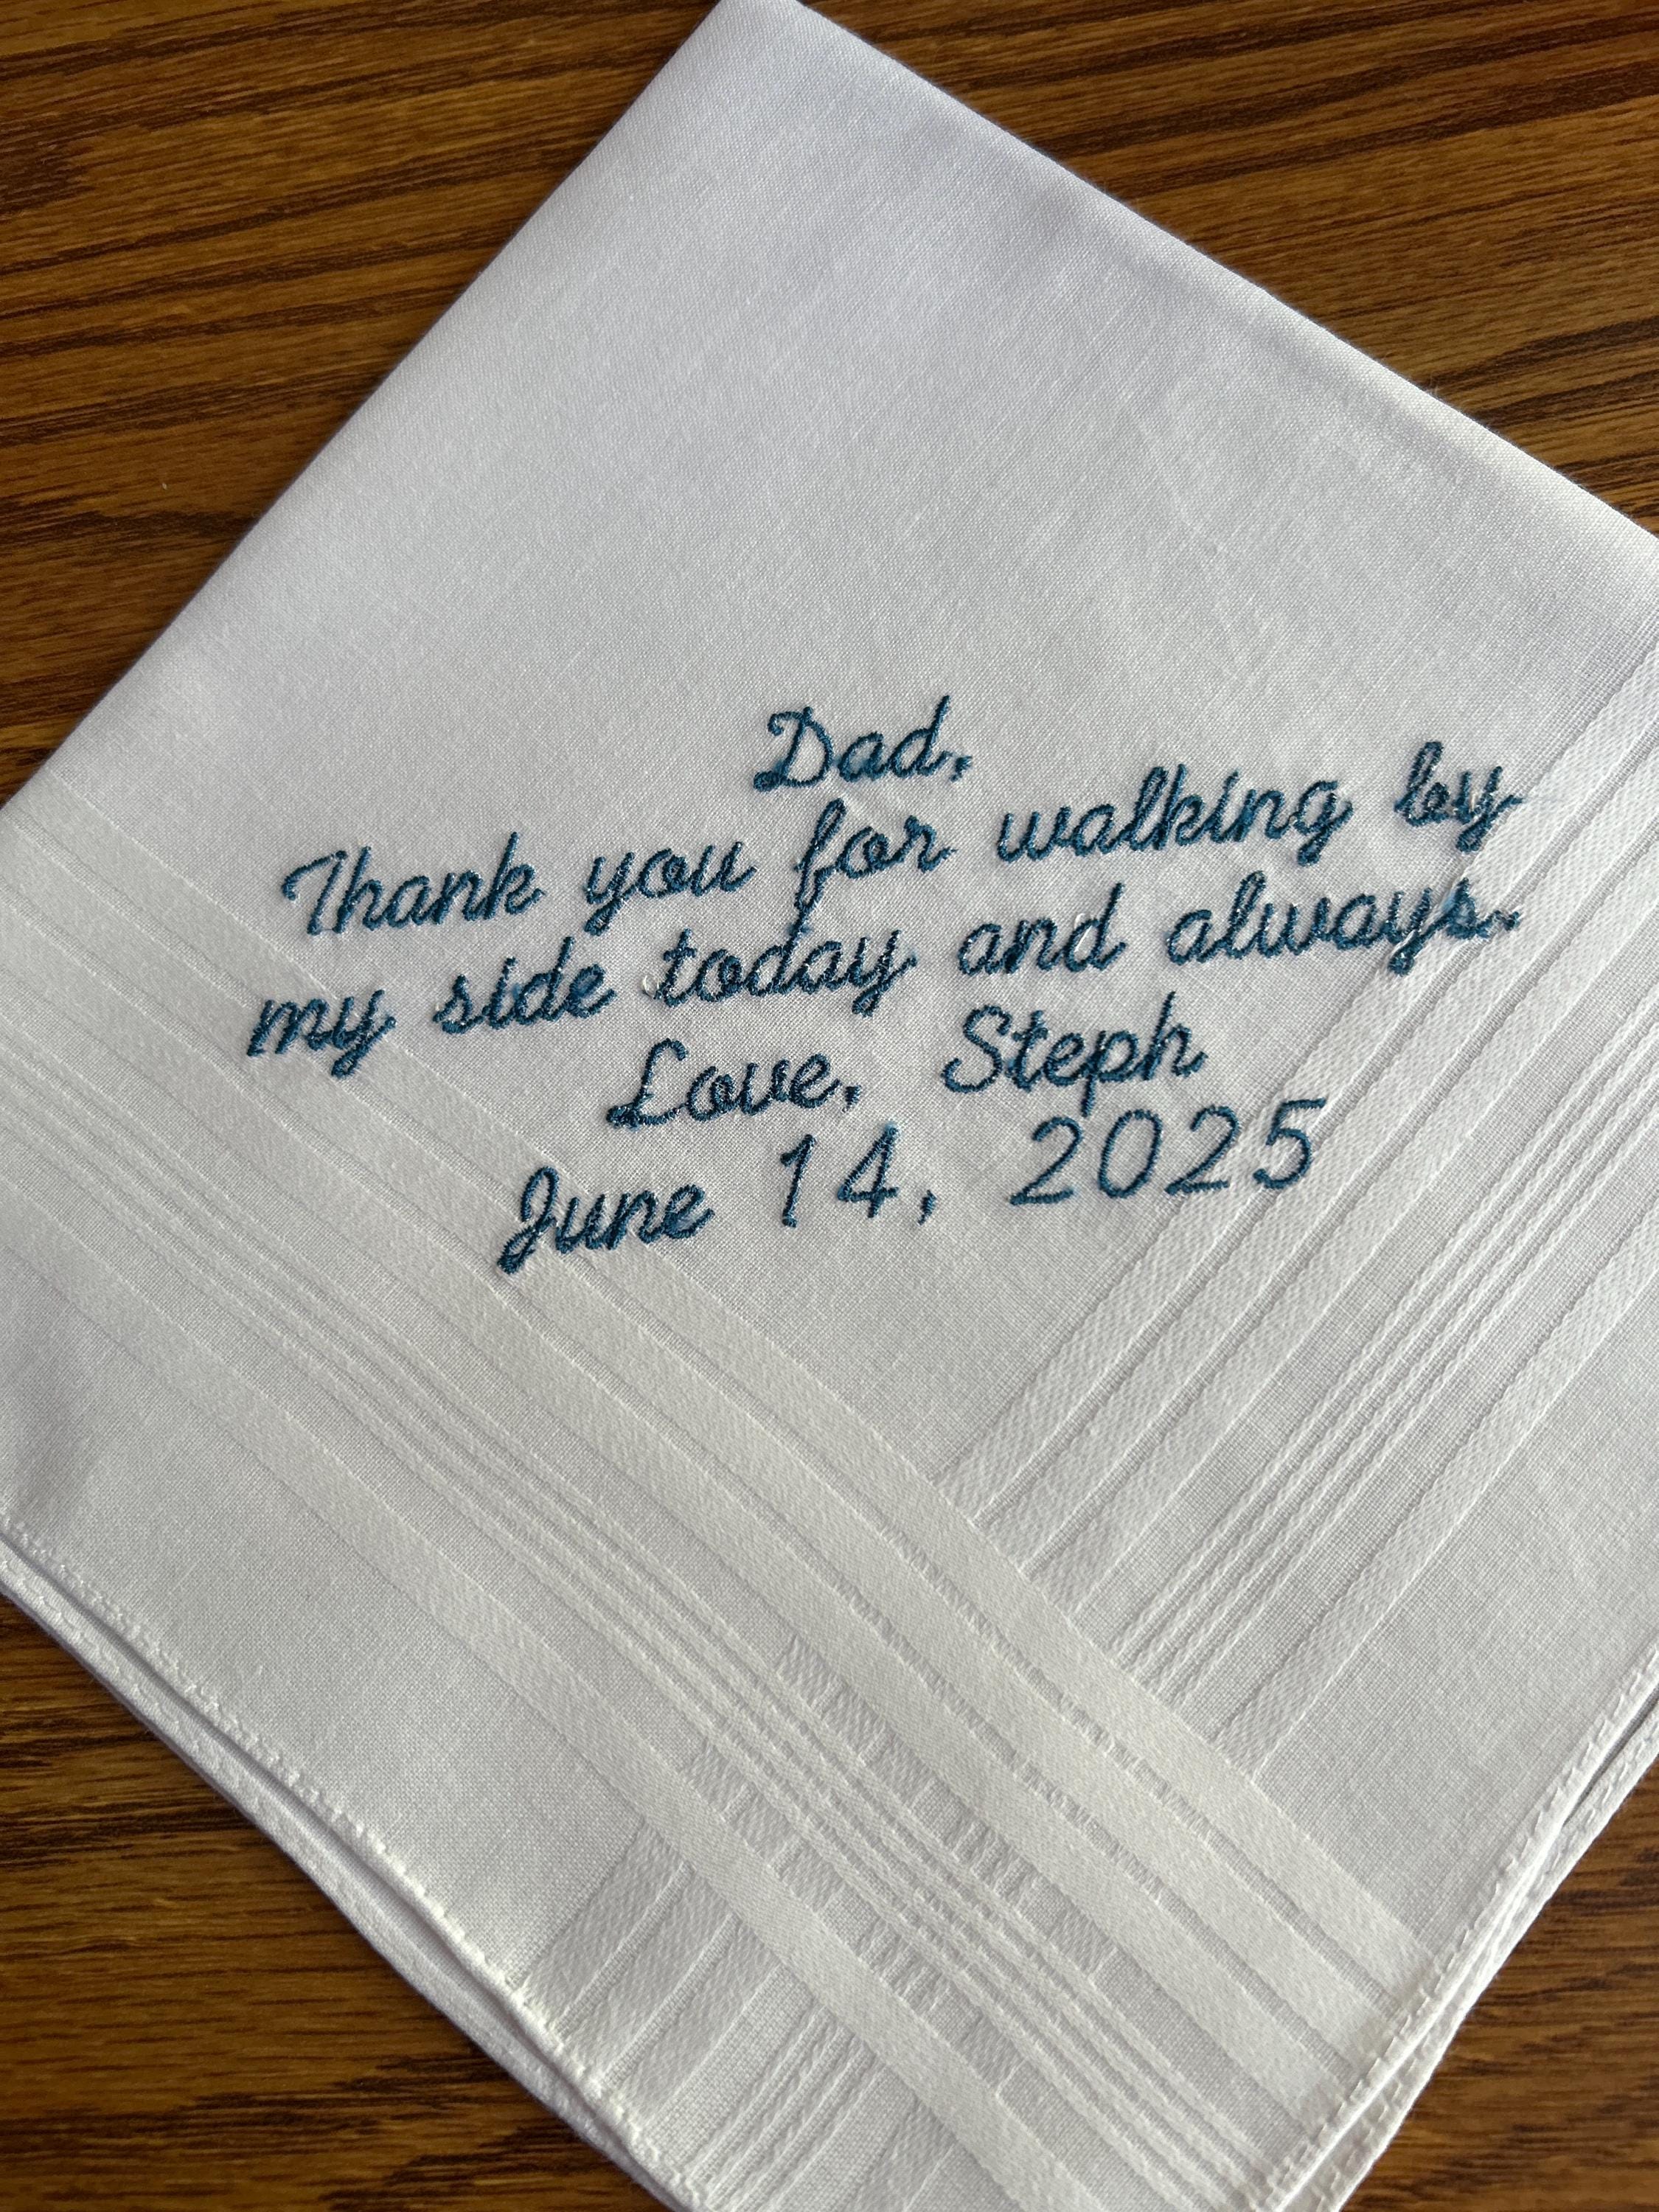 Dad,
Thank you for walking by
my side today and always.
Love, Steph
June 14, 2025